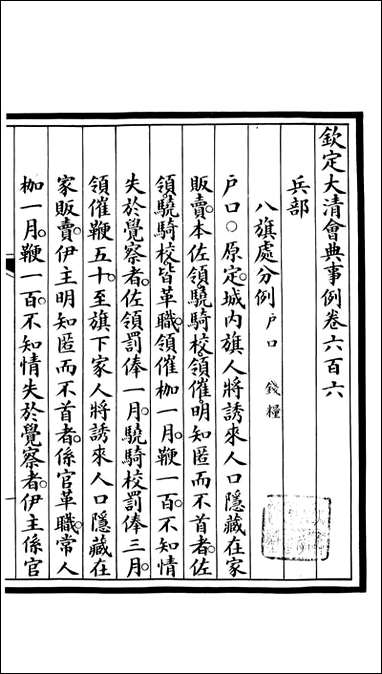 欽定大清會典事例卷六百六
兵部
八旗處分例戶口 錢糧
戶口○原定城內旗人將誘來人口隱藏在家
販賣本佐領驍騎校領催明知匿而不首者佐
領驍騎校皆革職領催枷一月鞭一百不知情
失於覺察者佐領罰俸一月驍騎校罰俸三月
領催鞭五十至旗下家人將誘來人口隱藏在
家販賣伊主明知匿而不首者係官革職常人
枷一月鞭一百不知情失於覺察者伊主係官